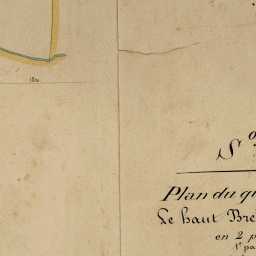 S.°
Plan du qu
Le haut Bre
en 2 p
1.e pa